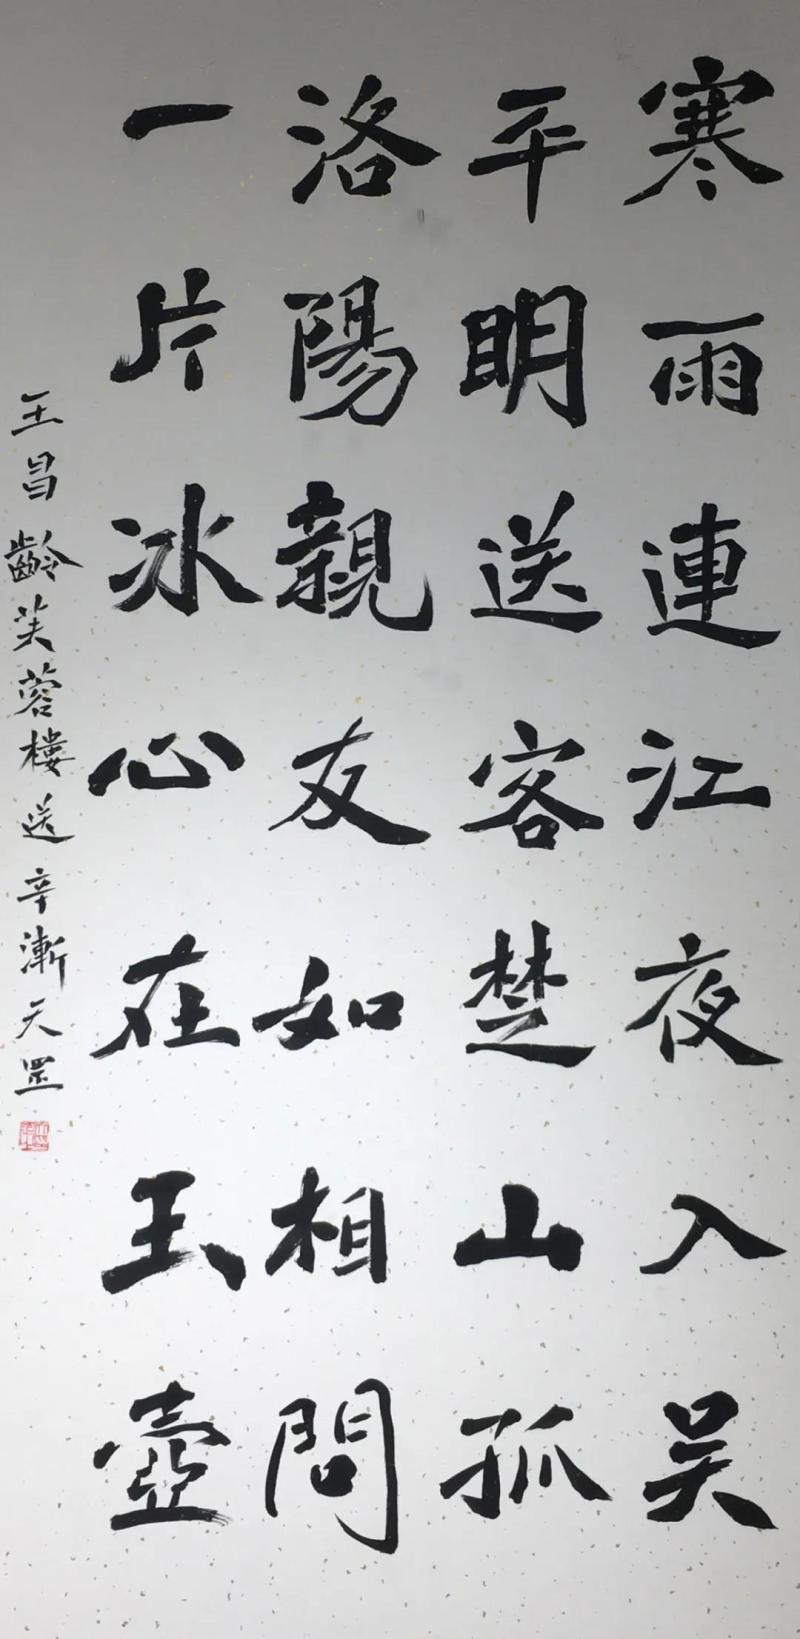 寒雨連江夜入吴
平明送客楚山孤
洛陽親友如相問
一片冰心在玉壺
王昌齡芙蓉樓送辛漸天罡